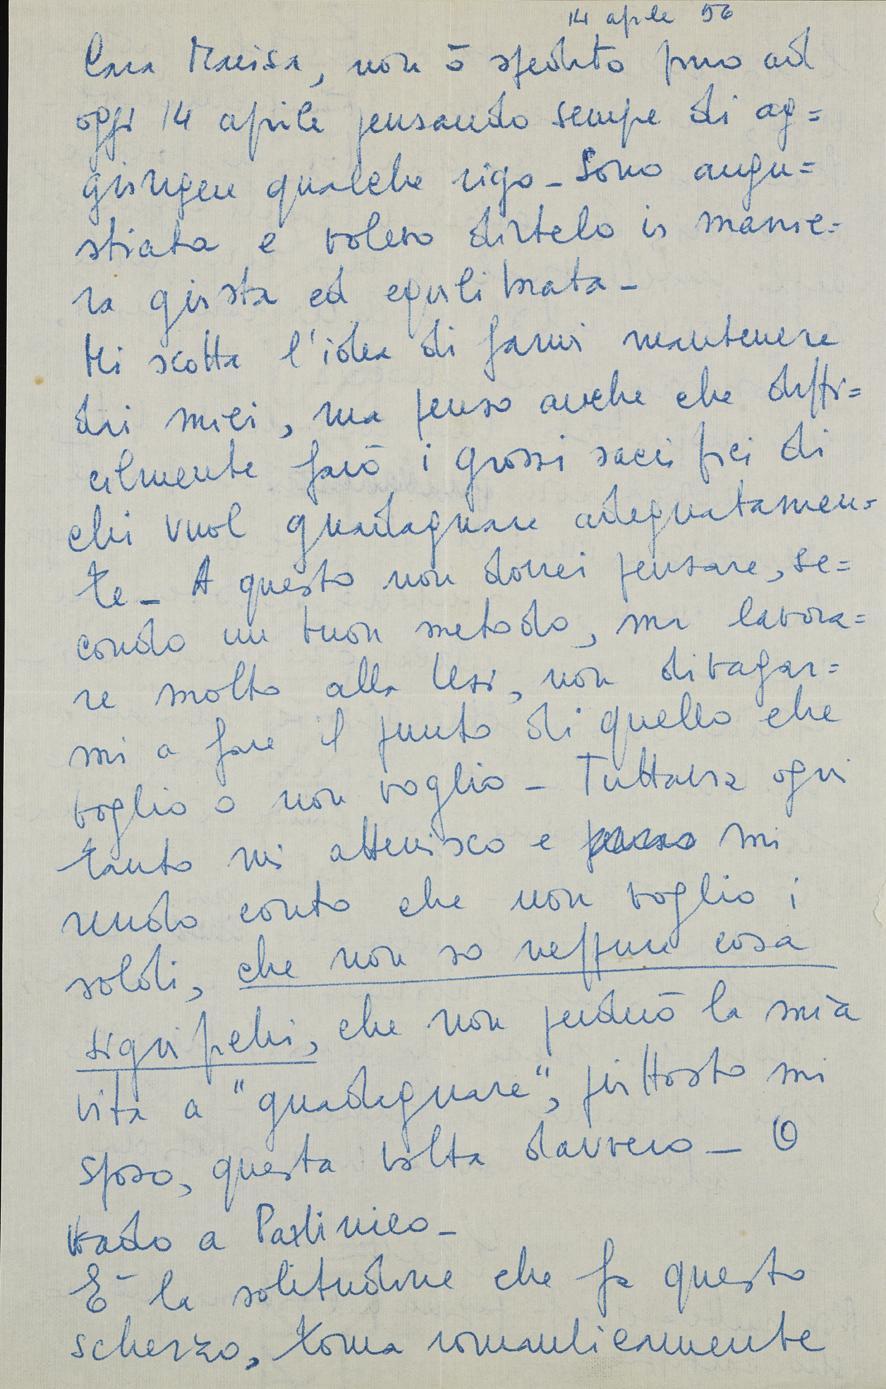 14 aprile 56
Cara Marisa, non ō spedito fino ad
oggi 14 aprile pensando sempre di ag=
giungere qualche rigo_ Sono angu=
stiata e volevo dirtelo in manie=
ra giusta ed equilibrata_
Mi scotta l'idea di farmi mantenere
dai miei, ma penso anche che diffi=
cilmente farō i grossi sacrifici di
chi vuol guadagnare adeguatamen=
te_ A questo non dovrei pensare, se=
condo un buon metodo, ma lavora=
re molto alla tesi, non divagar=
mi a fare il punto di quello che
voglio o non voglio_ Tuttavia ogni
tanto mi atterrisco e mi
rendo conto che non voglio i
soldi, che non so neppure cosa
significhi, che non perderō la mia
vita a "guadagnare", piuttosto mi
sposo, questa volta davvero_ O
vado a Partinico_
E¯ la solitudine che fa questo
scherzo, torna romanticamente